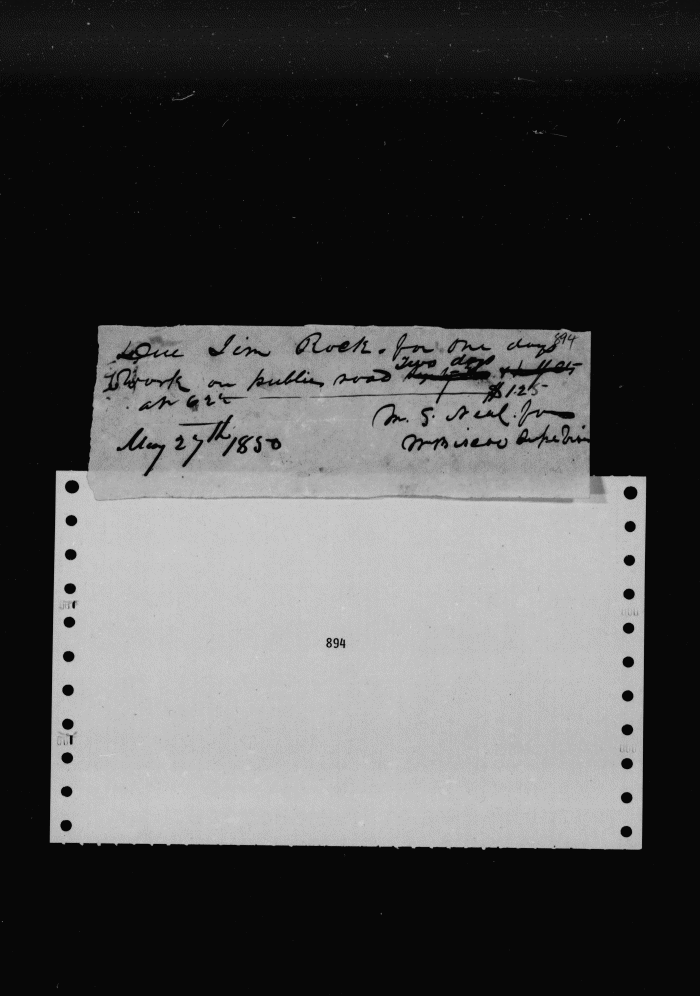 Due Jim Rock. for one days 894
work on public road Two days
at 62½ $1.25
M. G. Neal. for
May 27th 1850
894